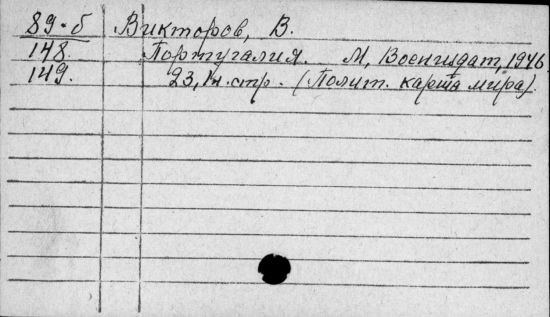 89-б Викторов, В.
148. Португалия. М, Воениздат, 1946.
149. 23, 1н. стр. (Полит. карта мира).